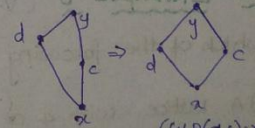 d y c x ⇒ y d c x